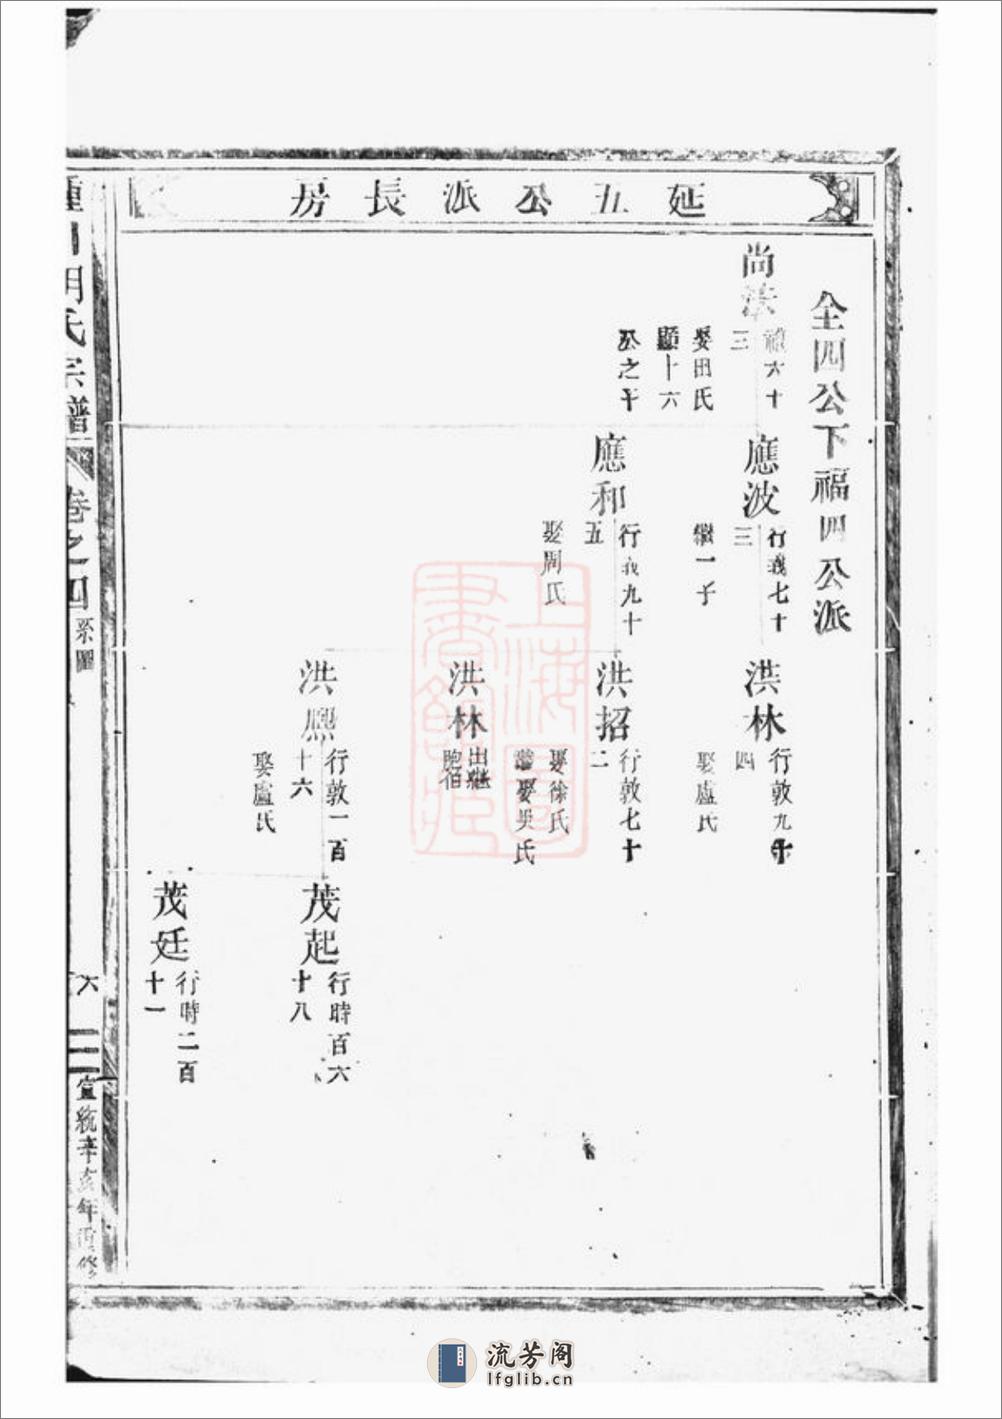 延五公派長房
全四公下福四公派
尚法
禮六十
三
娶田氏
顯十六
公之子
應波
行義七十
三
繼一子
應和
行義九十
五
娶周氏
洪林
行敦九十
四
娶盧氏
洪招
行敦七十
二
娶徐氏
繼娶吳氏
洪林
出繼
胞伯
洪熈
行敦一百
十六
娶盧氏
茂起
行時百六
十八
茂廷
行時二百
十一
胡氏宗譜
卷之四
系圖
六
宣統辛亥年重修
上海圖
書館藏
流芳阁
lfglib.cn